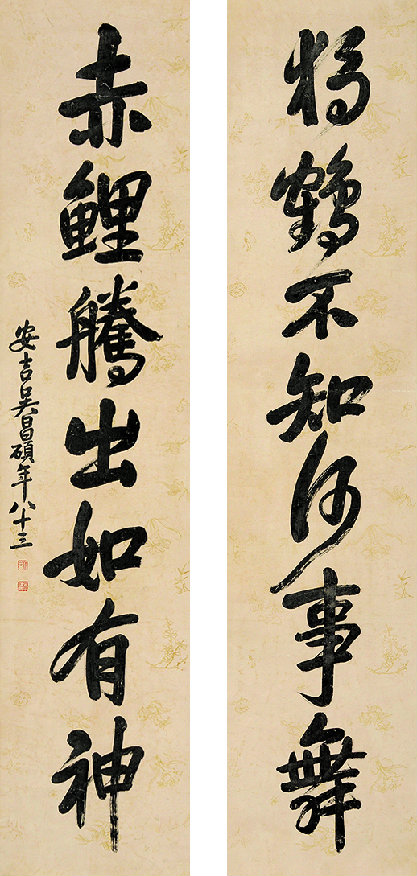 獨鶴不知何事舞
赤鯉騰出如有神
安吉吳昌碩年八十三